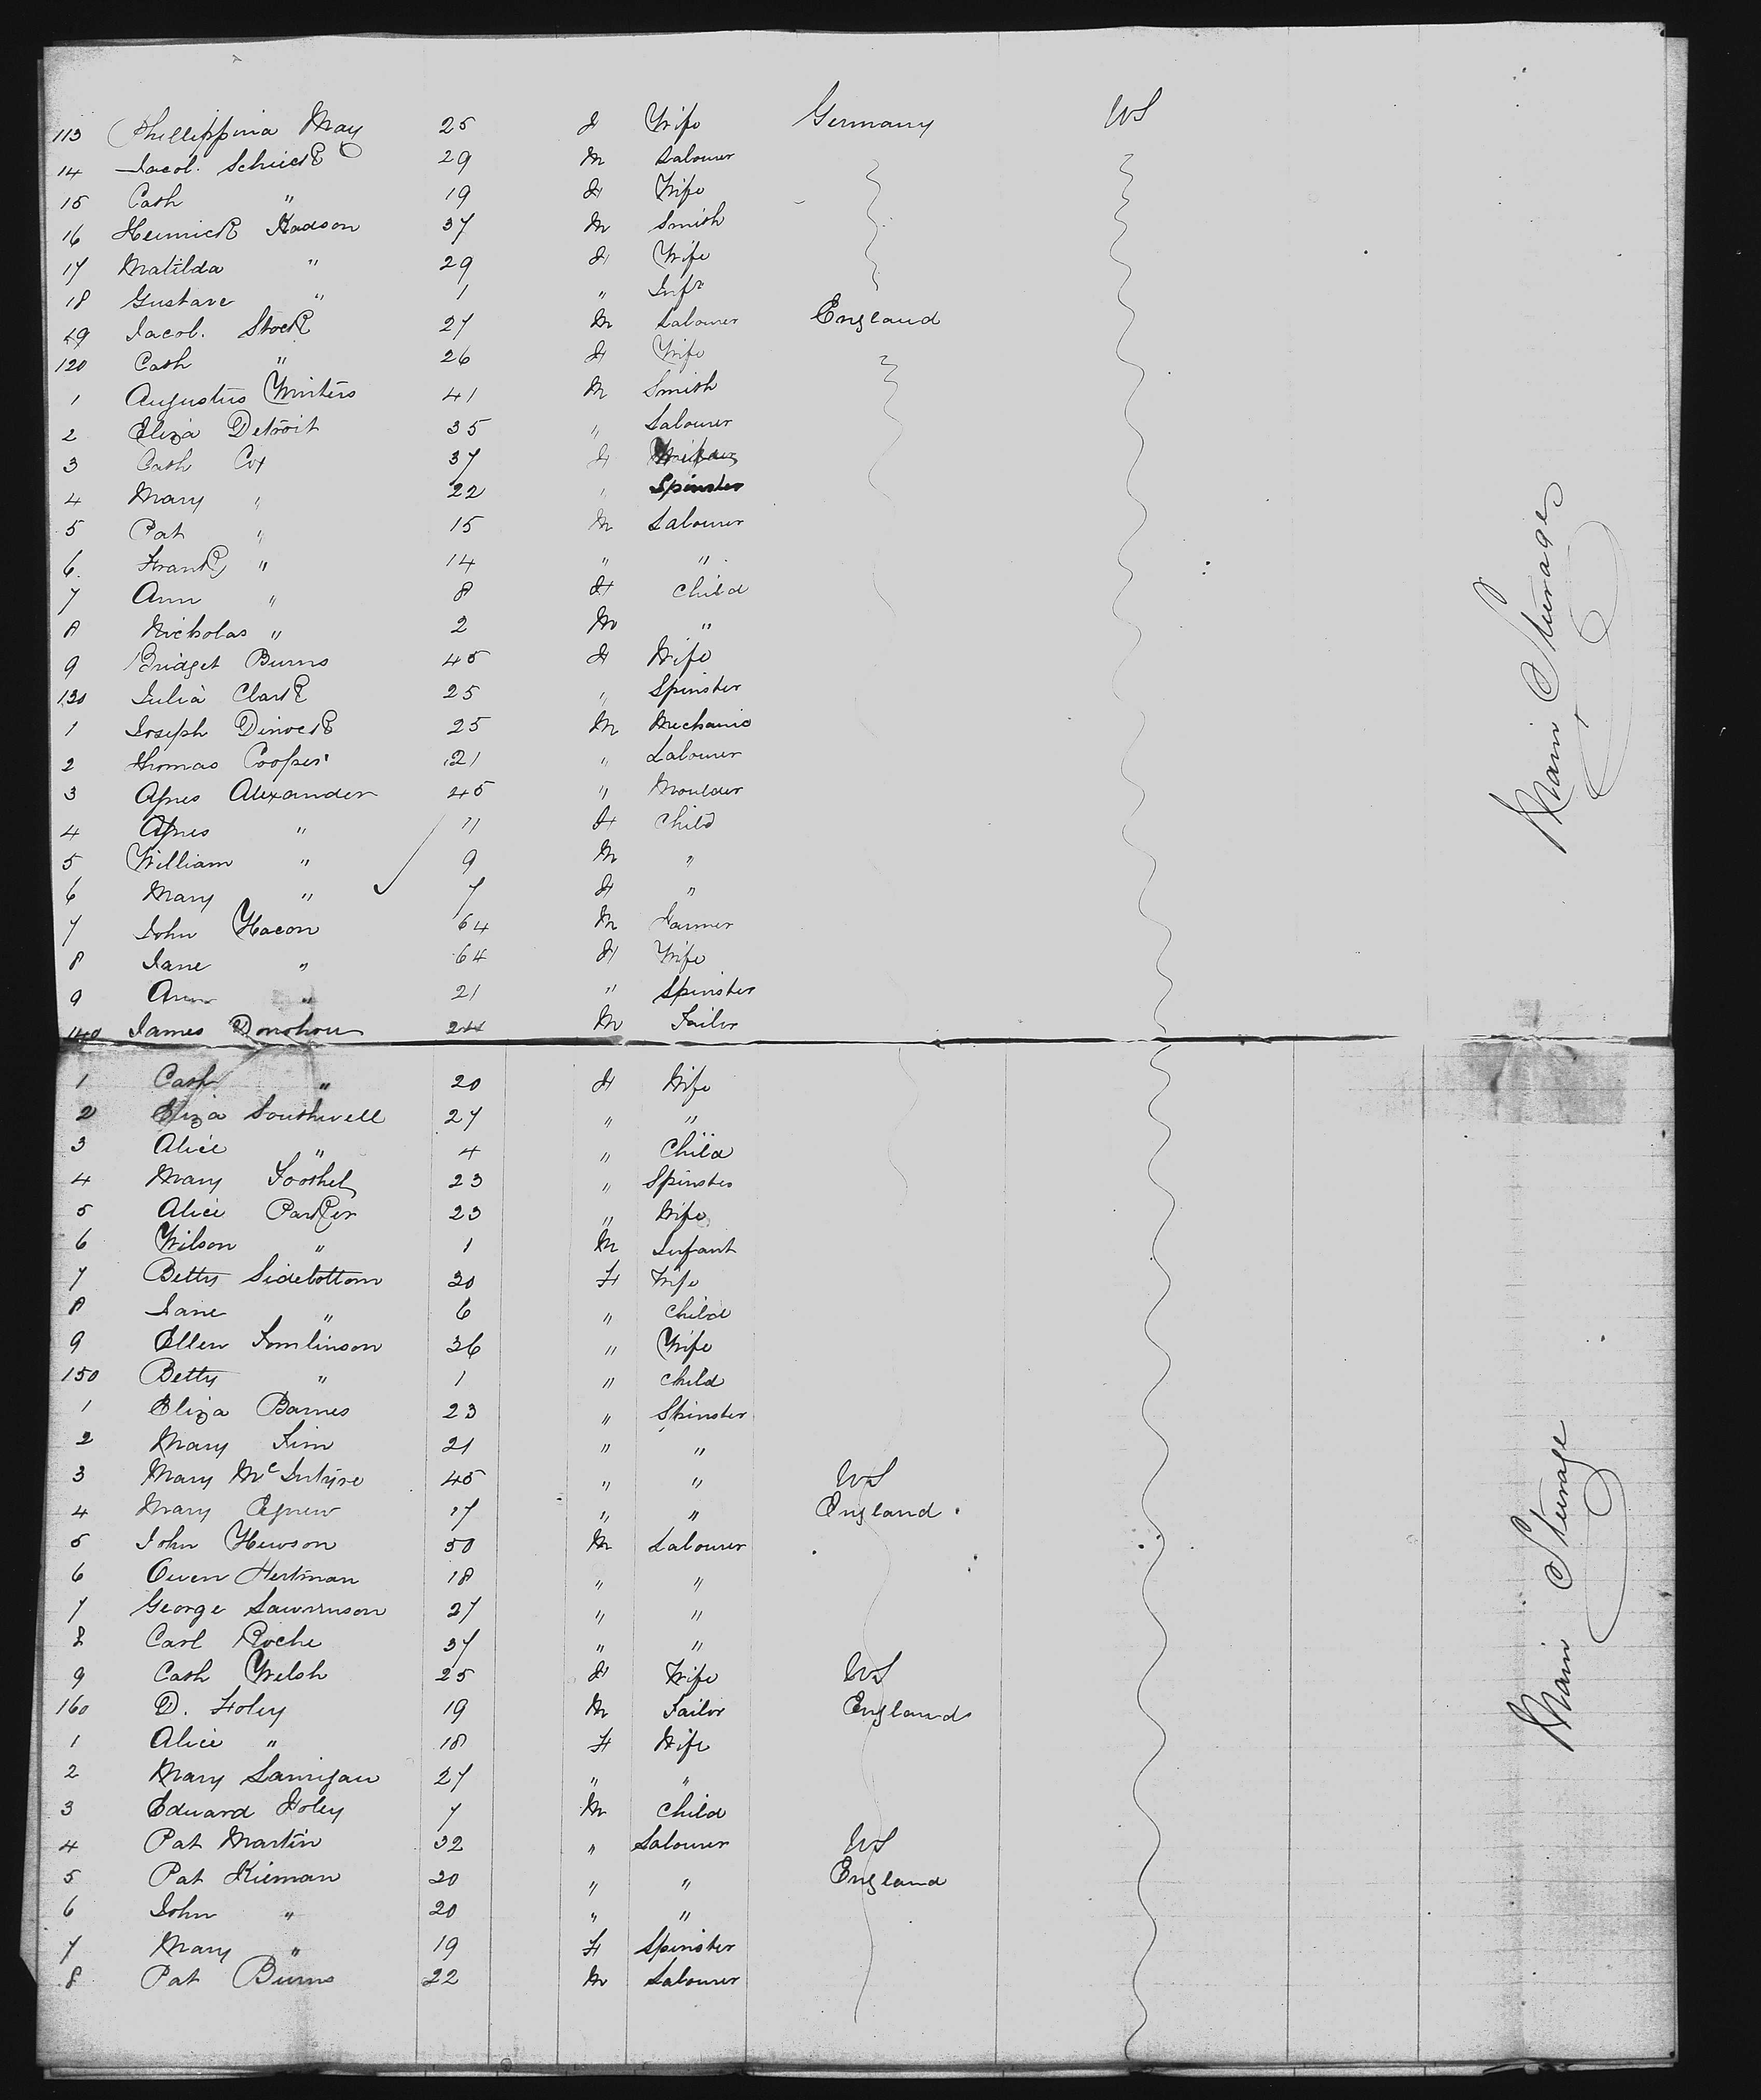 113 Phillippina May 25 F Wife Germany US
14 Jacob. Schuck 29 M Labourer
15 Cath " 19 F Wife
16 Heinrick Hadson 37 M Smith
17 Matilda " 29 F Wife
18 Gustave " 1 " Inft
19 Jacob. Stock 27 M Labourer England
120 Cath " 26 F Wife
1 Augustus Winters 41 M Smith
2 Eliza Detroit 35 " Labourer
3 Cath Cox 37 F
4 Mary " 22 " Spinster
5 Pat " 15 M Labourer
6. Frank " 14 " "
7 Ann " 8 F Child
8 Nicholas " 2 M "
9 Bridget Burns 45 F Wife
130 Julia Clark 25 " Spinster
1 Joseph Dinock 25 M Mechanic
2 Thomas Cooper 21 " Labourer
3 Agnes Alexander 45 " Moulder
4 Agnes " 11 F Child
5 William " 9 M "
6 Mary " 7 F "
7 John Hacon 64 M Farmer
8 Jane " 64 F Wife
9 Ann " 21 " Spinster
140 James Donohou 24 M Tailor
1 Cath " 20 F Wife
2 Eliza Southwell 27 " "
3 Alice " 4 " Child
4 Mary 23 " Spinster
5 Alice Parker 23 " Wife
6 Wilson " 1 M Infant
7 Betty Sidebottom 30 F Wife
8 Jane " 6 " Child
9 Ellen Tomlinson 36 " Wife
150 Betty " 1 " Child
1 Eliza Barnes 23 " Spinster
2 Mary Tim 21 " "
3 Mary McIntyre 45 " " US
4 Mary Agnew 17 " " England
5 John Hewson 50 M Labourer
6 Owen Hertman 18 " "
7 George Lawrenson 27 " "
8 Carl Roche 37 " "
9 Cath Welsh 25 F Wife US
160 D. Foley 19 M Tailor England
1 Alice " 18 F Wife
2 Mary Lannigan 27 " "
3 Edward Foley 7 M Child
4 Pat Martin 32 " Labourer US
5 Pat Kiernan 20 " " England
6 John " 20 " "
7 Mary " 19 F Spinster
8 Pat Burns 22 M Labourer
Main Steerage
Main Steerage